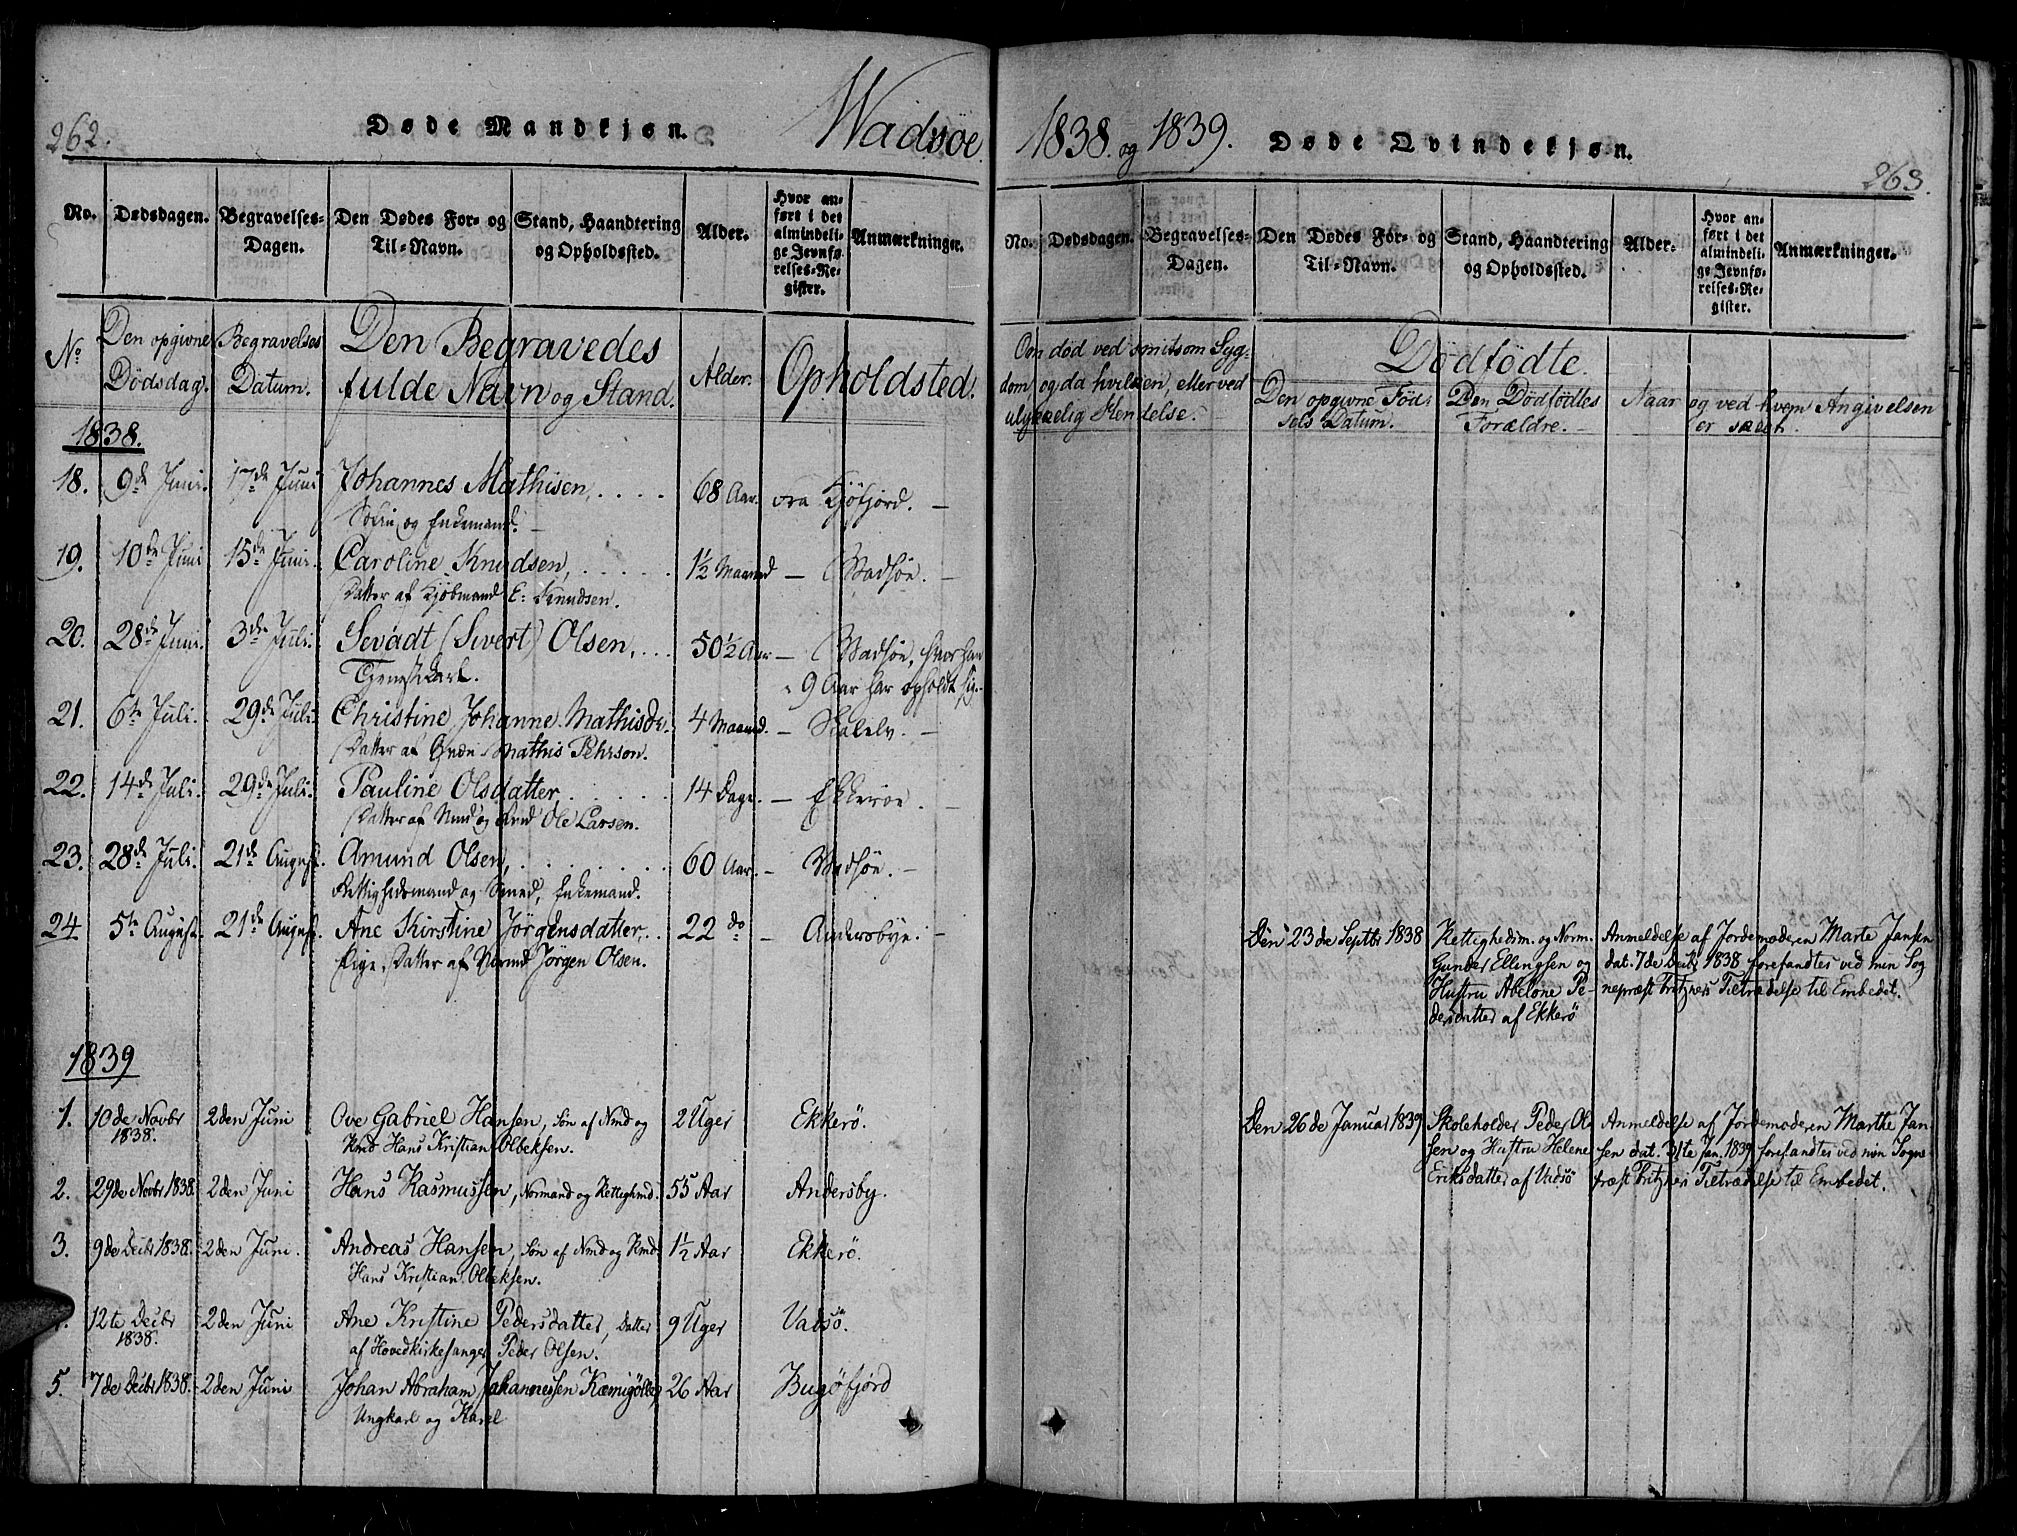 262.
Døde Mandkjøn.
Wadsøe
No.
Dødsdagen.
Begravelses-
Dagen.
Den Dødes For- og
Til-Navn.
Stand, Haandtering
og Opholdssted.
Alder.
Hvor an-
ført i det
almindeli-
ge Jevnfø-
relses-Re-
gister.
Anmærkninger.
No
Den opgivne
Dødsdag.
Begravelses
Datum.
Den Begravedes
fulde Navn og Stand.
Alder.
Opholdsted.
1838.
18. 9de Juni. 17de Juni Johannes Mathisen, .... 68 Aar. fra Kjøfjord. —
og Enkemand. —
19. 10de Juni 15de Juni. Caroline Knudsen, ..... 1½ Maaned — Wadsøe. —
Datter af Kjøbmand E: Knudsen.
20. 28de Juni. 3de Juli. Sevádt (Sivert) Olsen, ... 50½ Aar — Wadsøe, hvor han
Tjenestkarl. 9 Aar har opholdt sig.
21. 6te Juli. 29de Juli. Christine Johanne Mathisdr. 4 Maaned. — Skalelv. —
Datter af Qvæn Mathis Pehrson.
22. 14de Juli. 29de Juli. Pauline Olsdatter ..... 14 Dage. — Ekkerøe. —
Datter af Nmd og Ole Larsen.
23. 28de Juli. 21de August. Amund Olsen, ..... 60 Aar. — Wadsøe. —
Rettighedsmand og Enkemand.
24 5te August. 21de August. Ane Kirstine Jørgensdatter, .. 22 do — Andersbye. —
Pige, Datter af Normd Jörgen Olsen.
1839
1. 10de Novbr 2den Juni Ove Gabriel Hansen, Sön af Nmd og 2 Uger Ekkerö.
1838. Kmd Hans Kristian Olbeksen.
2. 29de Novbr 1838. 2den Juni Hans Rasmussen, Normand og Rettighmd. 55 Aar Andersby.
3. 9de Decbr 1838. 2den Juni. Andreas Hansen, Sön af Nmd og Kmd 1½ Aar Ekkerö.
Hans Kristian Olbeksen.
12te Decbr 2den Juni Ane Kristine Pedersdatter, Datter 9 Uger Vadsö.
1838. af Hovedkirkesanger Peder Olsen.
5. 7de Decbr 1838. 2den Juni Johan Abraham Johannessen 26 Aar Bugöfjord
Ungkarl og
1838. og 1839.
Døde Qvindekjøn.
263.
No.
Dødsdagen.
Begravelses-
Dagen.
Den Dødes For- og
Til-Navn.
Stand, Haandtering
og Opholdssted.
Alder.
Hvor an-
ført i det
almindeli-
ge Jevnfø-
relses-Re-
gister.
Anmærkninger.
Om död ved smitsom Syg-
dom og da hvilken, eller ved
ulykkelig Hendelse. —
Dödfödte.
Den opgivne Föd-
sels Datum.
Den Dödfödtes
Forældre. —
Naar og ved hvem Angivelsen
er skeet.
Den 23de Septbr 1838 Rettighedsm. og Norm. Anmeldelse af Jordemoderen Marte Jansen
Gunder Ellingsen og dat. 7de Decbr 1838 forefandtes ved min Sog
Hustru Abelone Pe- nepræst Fritzners Tiltrædelse til Embedet.
dersdatter af Ekkerö
Den 26de Januar 1839 Skoleholder Peder Ol Anmeldelse af Jordemoderen Marthe Jan
sen og Hustru Helene sen dat. 31te Jan. 1839 forefandtes ved min Sogne
Eriksdatter af Vadsö præst Fritzners Tiltrædelse til Embedet.